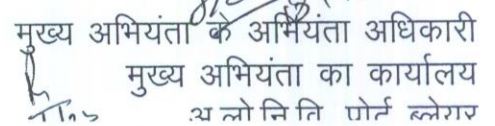 मुख्य अभियंता के अभियंता अधिकारी
मुख्य अभियंता का कार्यालय
अ लो नि वि पोर्ट ब्लेयर